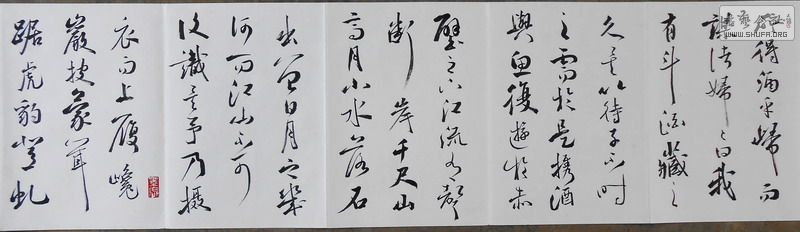 得酒乎歸而
謀諸婦々曰我
有斗酒藏之
久矣以待子不時
之需於是携酒
與魚復遊於赤
壁之下江流有聲
断岸千尺山
高月小水落石
出曾日月之幾
何而江山不可
復識矣予乃攝
衣而上履巉
巖披蒙茸
踞虎豹登虬
WWW.SHUFA.ORG